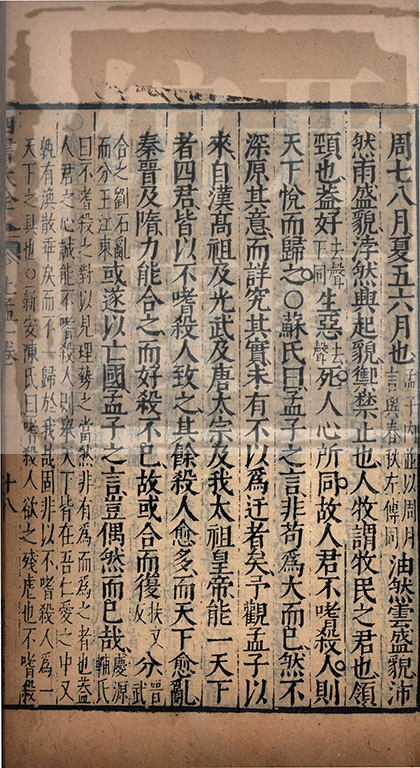 周七八月夏五六月也孟子內並以周月言與春秋左傳同油然雲盛貌沛
然雨盛貌浡然興起貌禦禁止也人牧謂牧民之君也領
頸也蓋好去聲下同生惡去聲死人心所同故人君不嗜殺人則
天下悅而歸之○蘇氏曰孟子之言非苟爲大而已然不
深原其意而詳究其實未有不以爲迂者矣予觀孟子以
來自漢高祖及光武及唐太宗及我太祖皇帝能一天下
者四君皆以不嗜殺人致之其餘殺人愈多而天下愈亂
秦晉及隋力能合之而好殺不已故或合而復扶又反分晉武
合之劉石亂而分王江東或遂以亡國孟子之言豈偶然而已哉慶源輔氏
曰不嗜殺之對以見理勢之當然非有爲而爲之者也蓋
人君之心誠能不嗜殺人則舉天下皆在吾仁愛之中又
孰有渙散乖戾而不一歸於我哉固非以不嗜殺人爲一
天下之具也○新安陳氏曰嗜殺人欲之殘虐也不嗜殺
十八